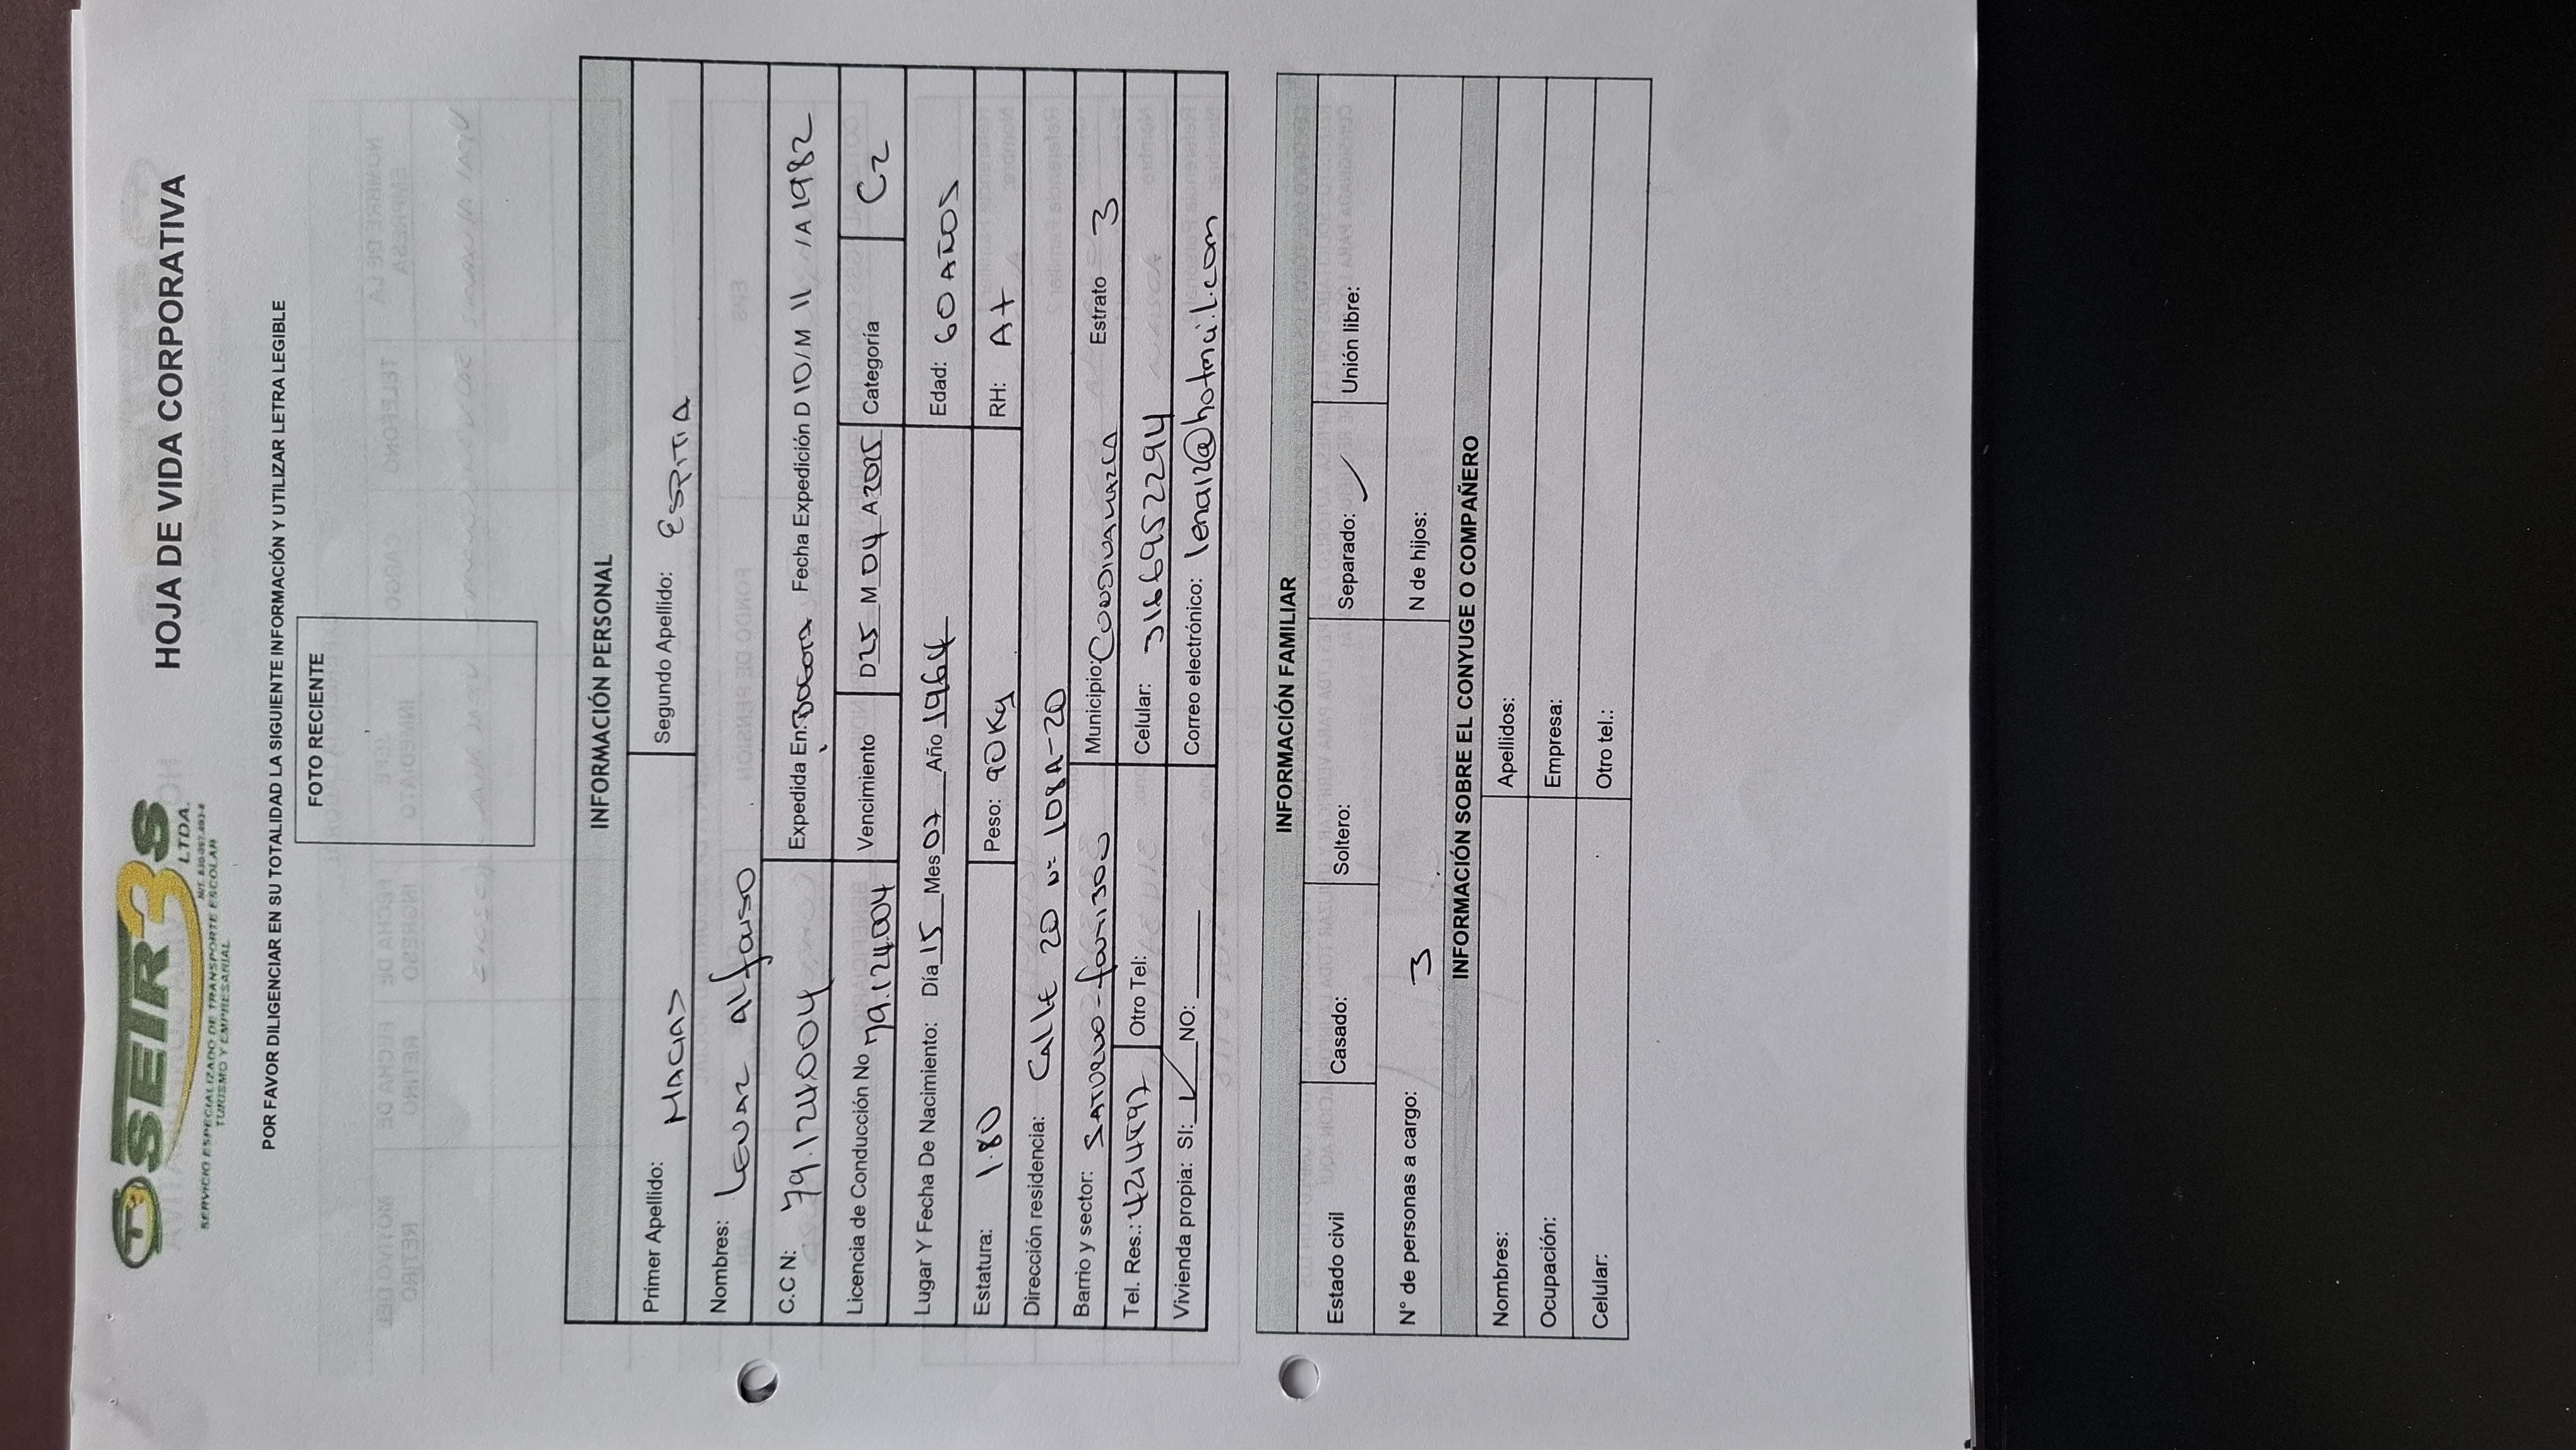 SEIR3S
LTDA.
NIT. 830.097.493-4
SERVICIO ESPECIALIZADO DE TRANSPORTE ESCOLAR
TURISMO Y EMPRESARIAL
HOJA DE VIDA CORPORATIVA
POR FAVOR DILIGENCIAR EN SU TOTALIDAD LA SIGUIENTE INFORMACIÓN Y UTILIZAR LETRA LEGIBLE
FOTO RECIENTE
INFORMACIÓN PERSONAL
Primer Apellido: MACIAS Segundo Apellido: ESPITIA
Nombres: LENAZ Alfonso
C.C N: 79.124.004 Expedida En: BOGOTA Fecha Expedición D 10/M 11 /A 1982
Licencia de Conducción No 79.124.004 Vencimiento D 25 M 04 A 2025 Categoría C2
Lugar Y Fecha De Nacimiento: Día 15 Mes 07 Año 1964 Edad: 60 AÑOS
Estatura: 1.80 Peso: 90 Kg RH: A+
Dirección residencia: Calle 20 N= 108A-20
Barrio y sector: - fontibon Municipio: Estrato 3
Tel. Res.: 4244497 Otro Tel: Celular: 3166952294
Vivienda propia: SI: ✓ NO: Correo electrónico: lena12@hotmail.com
INFORMACIÓN FAMILIAR
Estado civil Casado: Soltero: Separado: ✓ Unión libre:
N° de personas a cargo: 3 N de hijos:
INFORMACIÓN SOBRE EL CONYUGE O COMPAÑERO
Nombres: Apellidos:
Ocupación: Empresa:
Celular: Otro tel.: